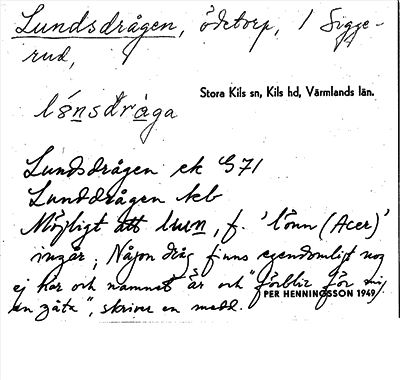 Lundsdrågen, ödetorp, i Sigge-
rud,
Stora Kils sn, Kils hd, Värmlands län.
lönsdråga
Lundsdrågen ek G71
Lunddrågen kb
Möjligt att lnun, f. 'lönn (Acer)'
ingår; Någon dråg finns egendomligt nog
ej här och namnet är och "förblir för mig
en gåta", skriver en medd.
PER HENNINGSSON 1949